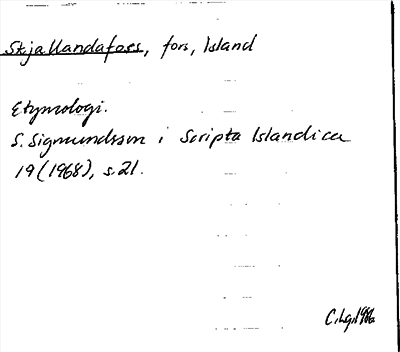 Skjallandafoss, fors, Island
Etymologi.
S. Sigmundsson i Scripta Islandica
19(1968), s.21.